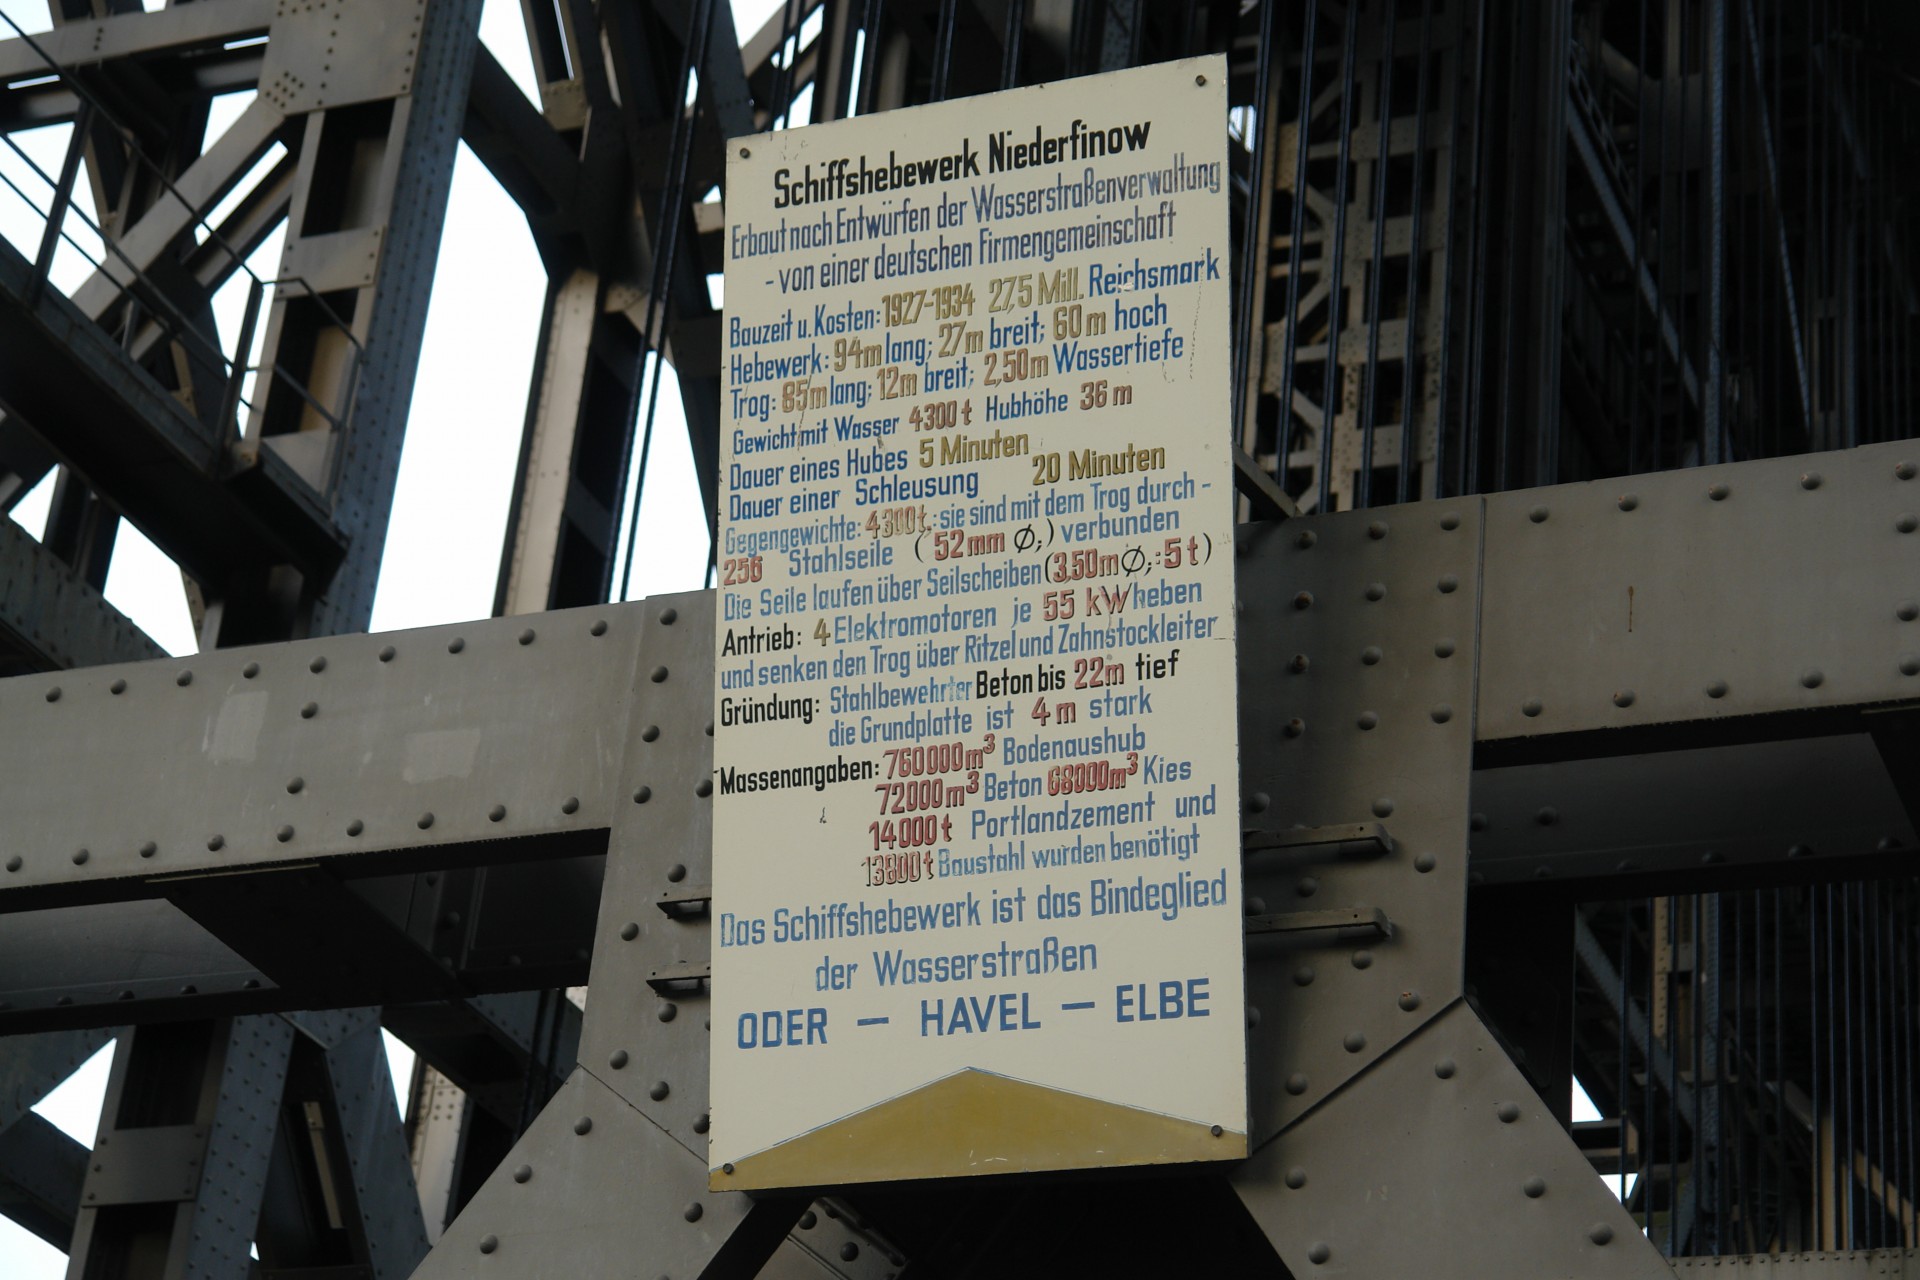 Schiffshebewerk Niederfinow
Erbaut nach Entwürfen der Wasserstraßenverwaltung
- von einer deutschen Firmengemeinschaft
Bauzeit u. Kosten: 1927-1934 27,5 Mill. Reichsmark
Hebewerk: 94m lang; 27m breit; 60m hoch
Trog: 85m lang; 12m breit; 2,50m Wassertiefe
Gewicht mit Wasser 4300t Hubhöhe 36 m
Dauer eines Hubes 5 Minuten
Dauer einer Schleusung 20 Minuten
Gegengewichte: 4300t.: sie sind mit dem Trog durch -
256 Stahlseile ( 52mm Ø;) verbunden
Die Seile laufen über Seilscheiben (3,50m Ø;: 5 t)
Antrieb: 4 Elektromotoren je 55 kW heben
und senken den Trog über Ritzel und Zahnstockleiter
Gründung: Stahlbewehrter Beton bis 22m tief
die Grundplatte ist 4 m stark
Massenangaben: 760000m³ Bodenaushub
72000m³ Beton 68000m³ Kies
14000t Portlandzement und
13800t Baustahl wurden benötigt
Das Schiffshebewerk ist das Bindeglied
der Wasserstraßen
ODER — HAVEL — ELBE